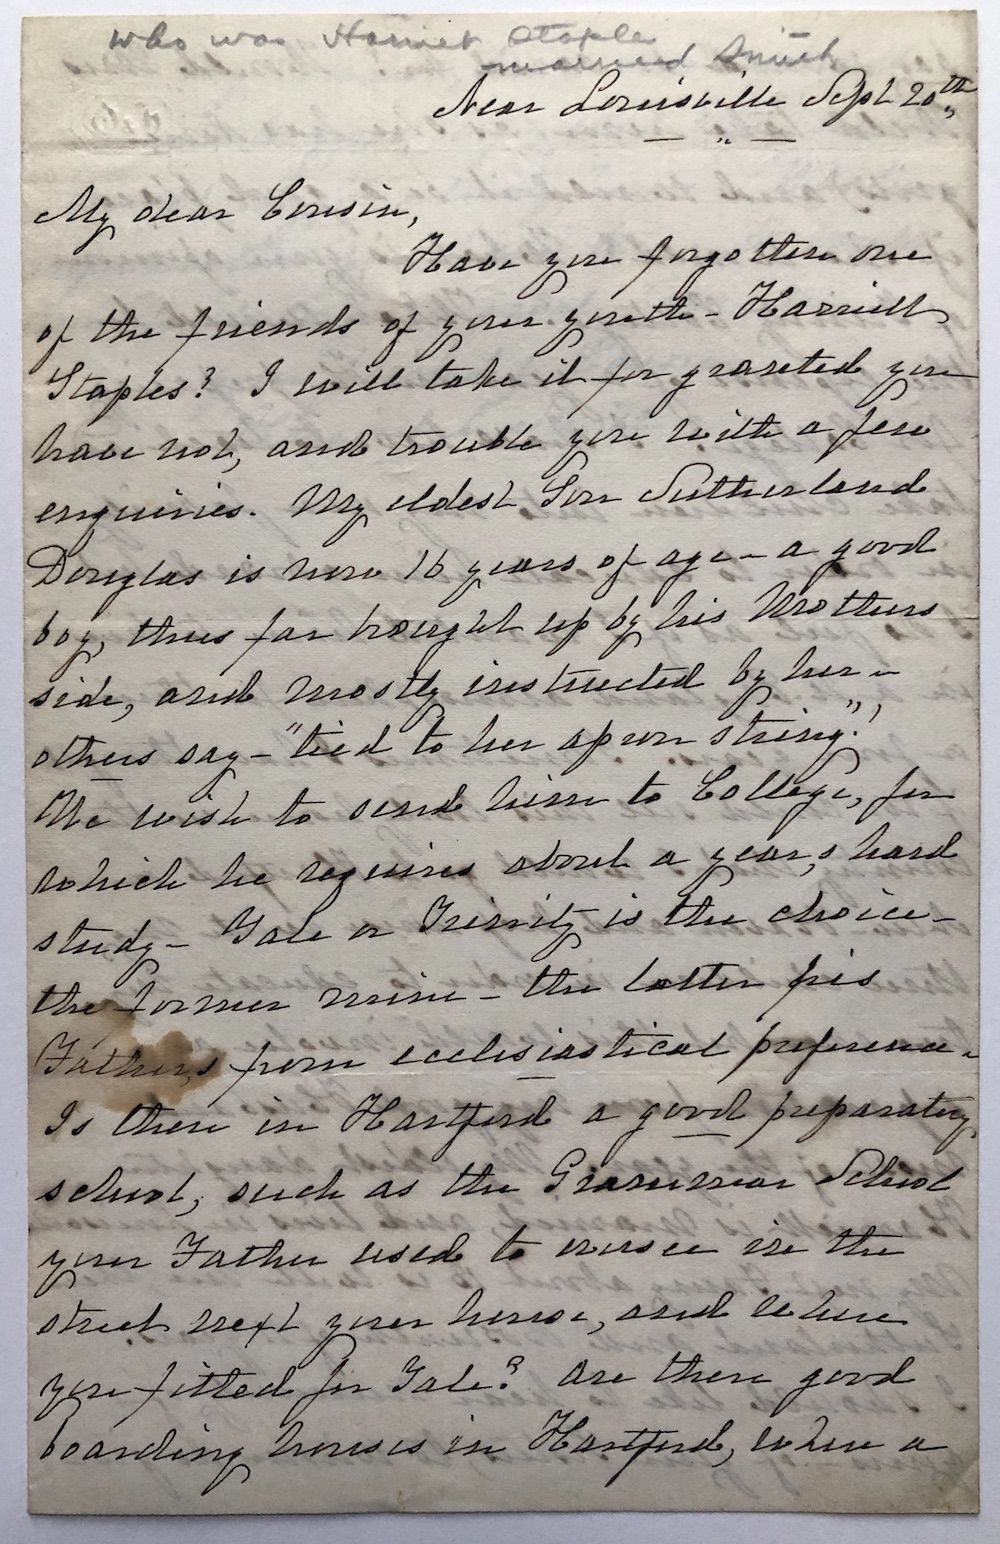 who was Harriet Staple
married Smith
Near Louisville Sept 20th,
My dear Cousin,
Have you forgotten one
of the friends of your youth - Harriett
Staples? I will take it for granted you
have not, and trouble you with a few
enquiries. My eldest Son Sutherland
Douglas is now 16 years of age - a good
boy, thus far brought up by his Mothers
side, and mostly instructed by her -
others say - "tied to her apron string".
We wish to send him to College, for
which he requires about a year,s hard
study - Yale or Trinity is the choice -
the former mine - the latter his
Father,s from ecclesiastical preference.
Is there in Hartford a good preparatory
school, such as the Grammar School
your Father used to oversee in the
street next your house, and where
you fitted for Yale? Are there good
boarding houses in Hartford, where a